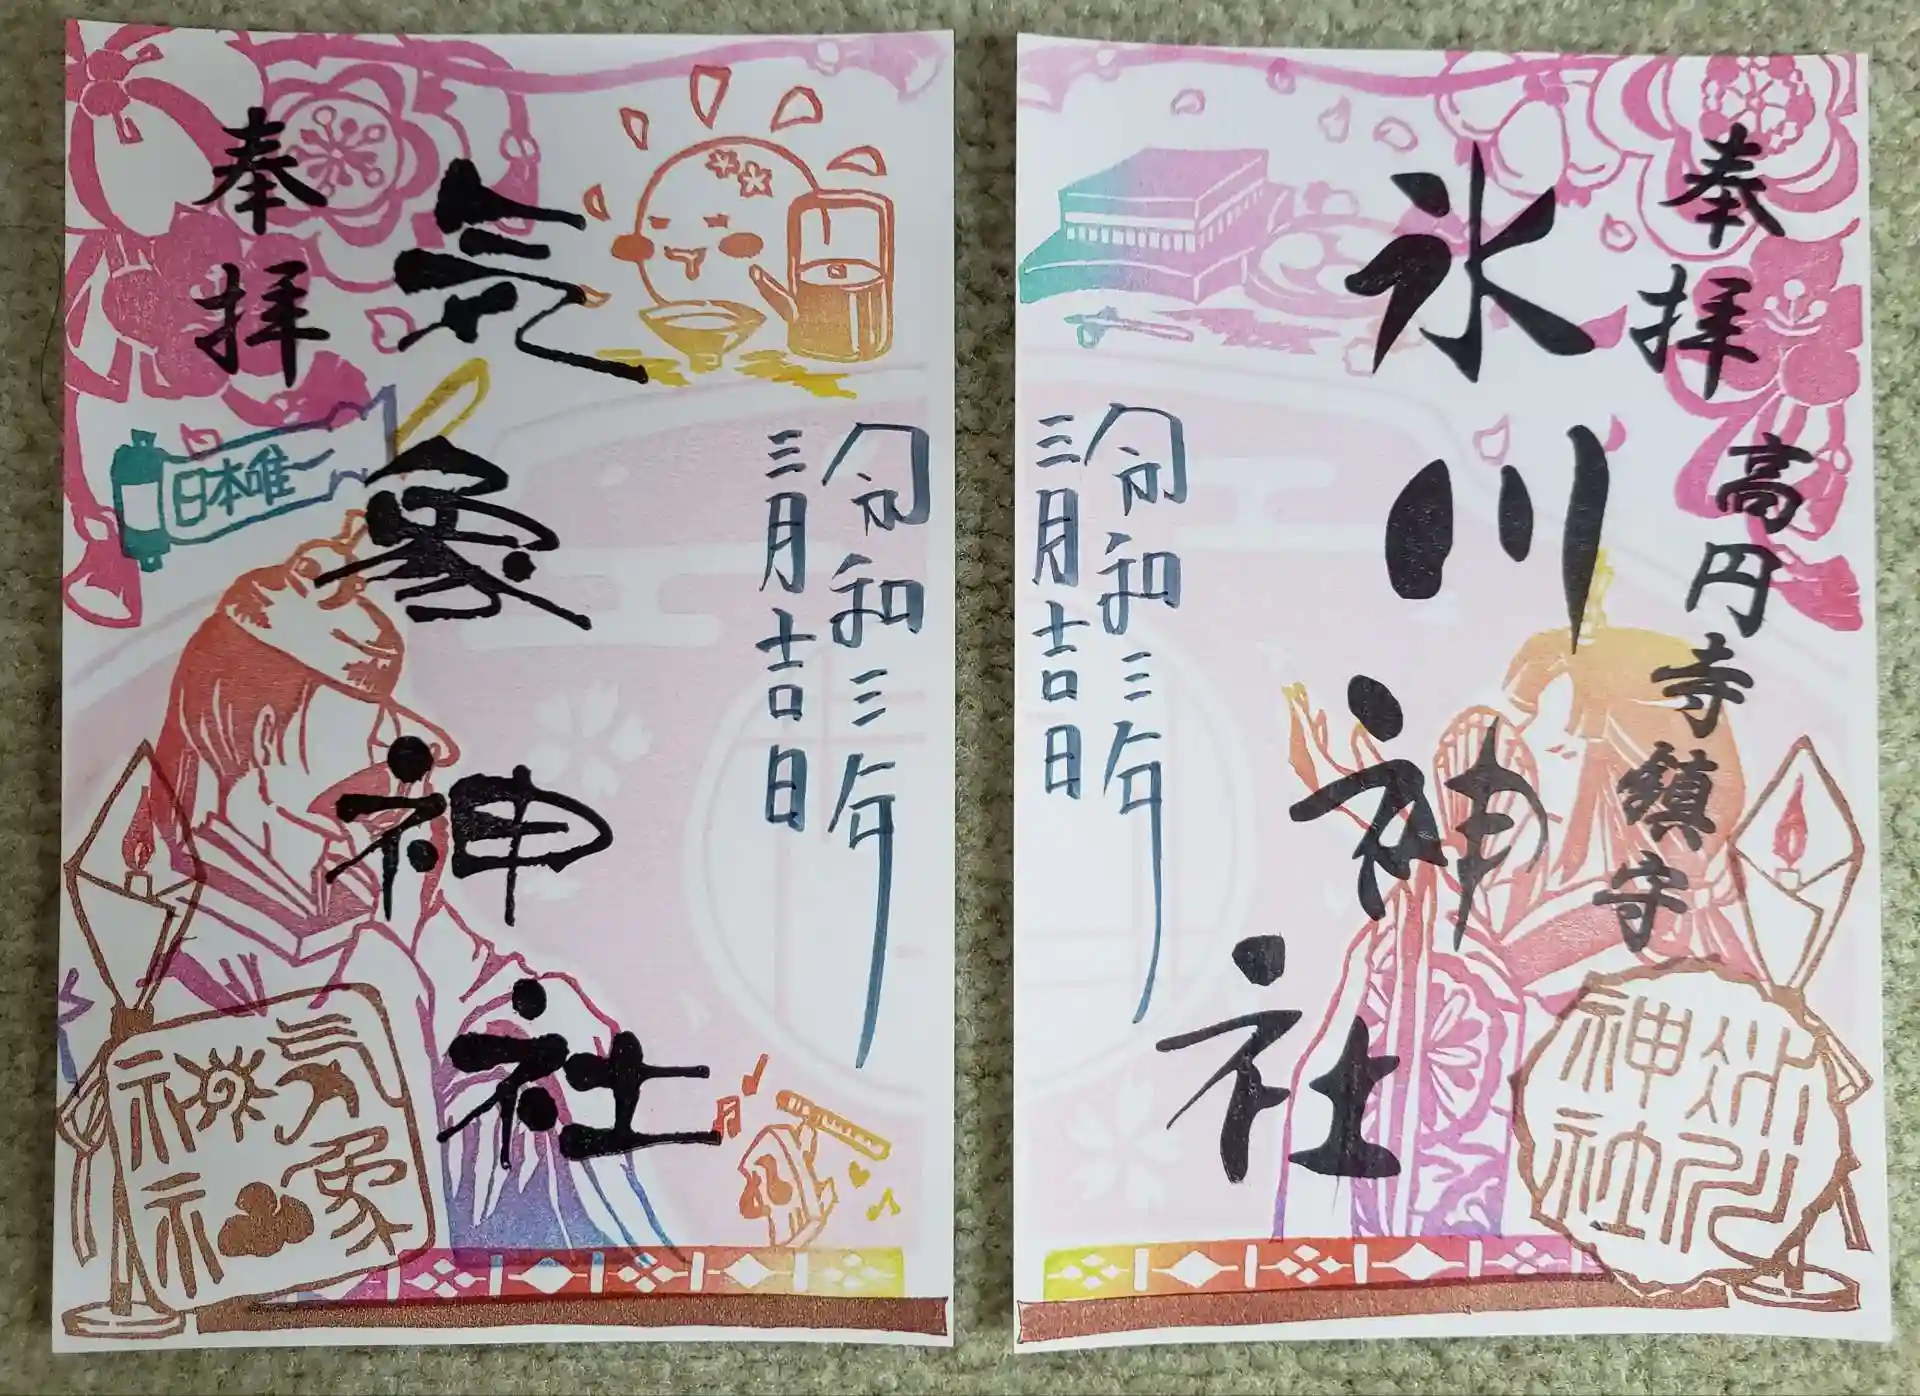 奉拝
気象神社
日本唯一
令和三年
三月吉日
気象
神社
奉拝
高円寺鎮守
氷川神社
令和三年
三月吉日
氷川
神社